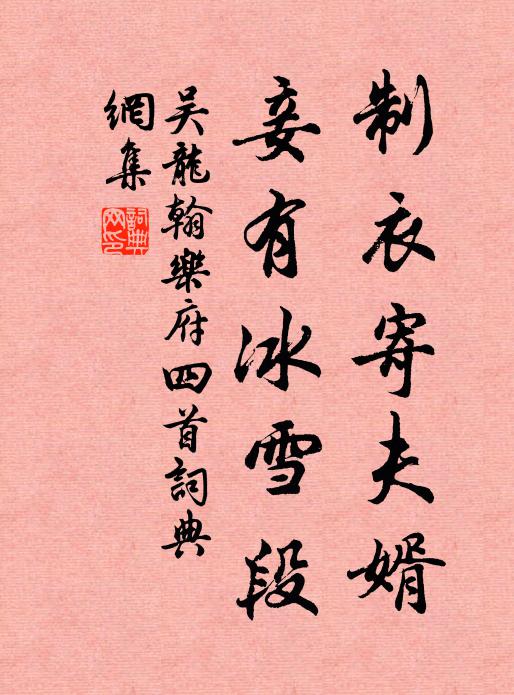 制衣寄夫婿
妾有冰雪段
吴龍翰樂府四首詞典
網集
詞典网印